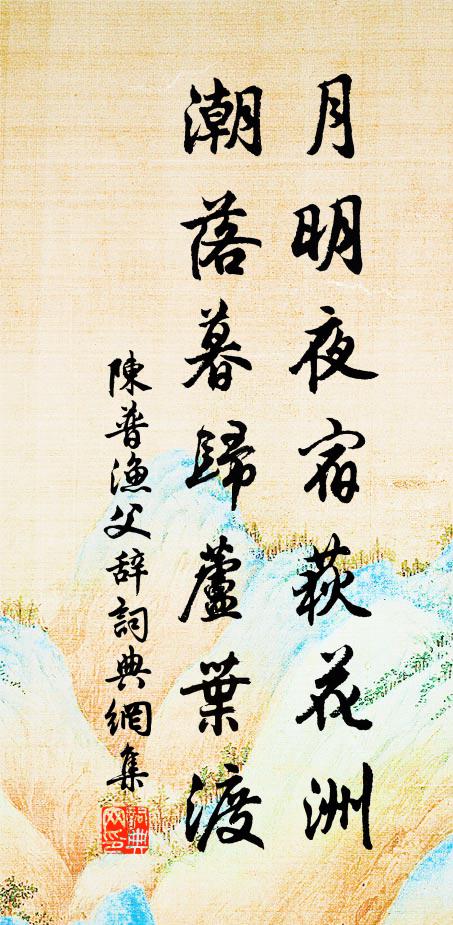 月明夜宿萩花洲
潮落暮歸蘆葉渡
陳普漁父辞詞典網集
詞典网印